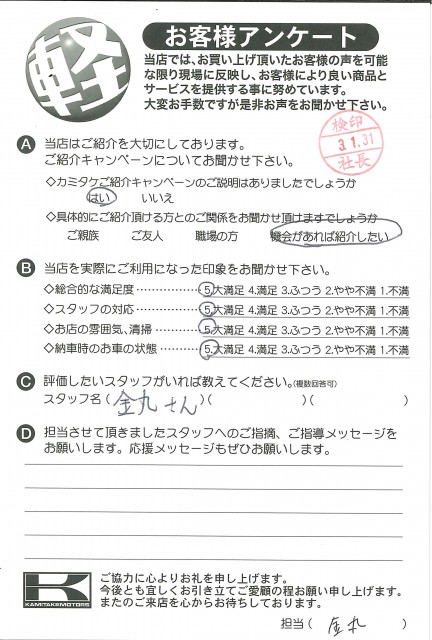 軽
お客様アンケート
当店では、お買い上げ頂いたお客様の声を可能
な限り現場に反映し、お客様により良い商品と
サービスを提供する事に努めています。
大変お手数ですが是非お声をお聞かせ下さい。
検印
3.1.31
社長
A 当店はご紹介を大切にしております。
ご紹介キャンペーンについてお聞かせ下さい。
◇カミタケご紹介キャンペーンのご説明はありましたでしょうか
はい いいえ
◇具体的にご紹介頂ける方とのご関係をお聞かせ頂けますでしょうか
ご親族 ご友人 職場の方 機会があれば紹介したい
B 当店を実際にご利用になった印象をお聞かせ下さい。
◇総合的な満足度 ……………… 5.大満足 4.満足 3.ふつう 2.やや不満 1.不満
◇スタッフの対応 ……………… 5.大満足 4.満足 3.ふつう 2.やや不満 1.不満
◇お店の雰囲気、清掃 ………… 5.大満足 4.満足 3.ふつう 2.やや不満 1.不満
◇納車時のお車の状態 ………… 5.大満足 4.満足 3.ふつう 2.やや不満 1.不満
C 評価したいスタッフがいれば教えてください。(複数回答可)
スタッフ名 ( 金丸さん )( )( )
D 担当させて頂きましたスタッフへのご指摘、ご指導メッセージを
お願いします。応援メッセージもぜひお願いします。
K
KAMITAKE MOTORS
ご協力に心よりお礼を申し上げます。
今後とも宜しくお引き立てご愛顧の程お願い申し上げます。
またのご来店を心からお待ちしております。
担当 ( 金丸 )